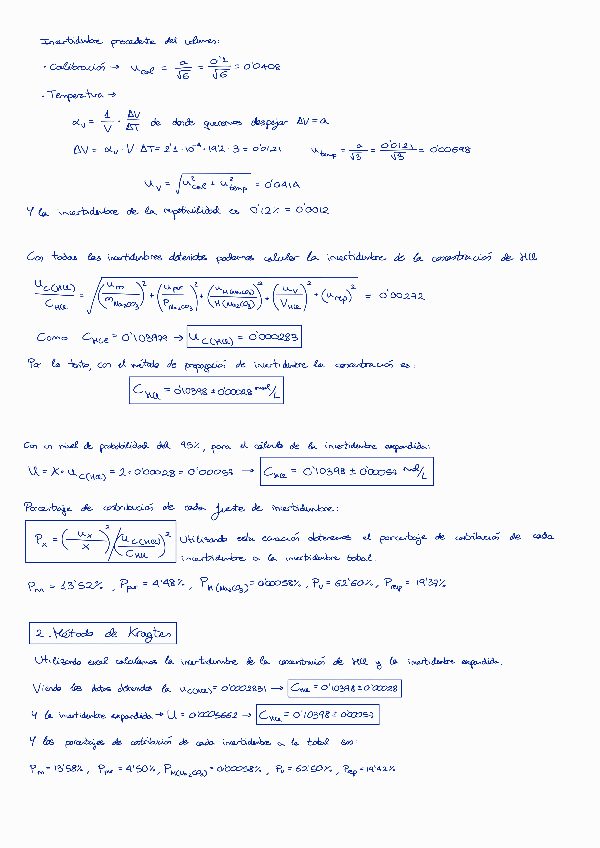 Incertidumbre procedente del volumen:
· Calibración → u_cal = a/√6 = 0'1/√6 = 0'0408
· Temperatura →
α_V = 1/V · ΔV/ΔT de donde queremos despejar ΔV = a
ΔV = α_V · V · ΔT = 2'1 · 10⁻⁴ · 19'2 · 3 = 0'0121   u_temp = a/√3 = 0'0121/√3 = 0'00698
u_V = √(u²_cal + u²_temp) = 0'0414
Y la incertidumbre de la repetibilidad es 0'12% = 0'0012
Con todas las incertidumbres obtenidas podemos calcular la incertidumbre de la concentración de HCl
u_C(HCl)/C_HCl = √((u_m/m_Na₂CO₃)² + (u_pur/P_Na₂CO₃)² + (u_M(Na₂CO₃)/M(Na₂CO₃))² + (u_V/V_HCl)² + (u_rep)²) = 0'00272
Como C_HCl = 0'103979 → u_C(HCl) = 0'000283
Por lo tanto, con el método de propagación de incertidumbre la concentración es:
C_HCl = 0'10398 ± 0'00028 mol/L
Con un nivel de probabilidad del 95%, para el cálculo de la incertidumbre expandida:
U = K · u_C(HCl) = 2 · 0'00028 = 0'00057 → C_HCl = 0'10398 ± 0'00057 mol/L
Porcentaje de contribución de cada fuente de incertidumbre:
P_x = (u_x/x)² / (u_C(HCl)/C_HCl)² Utilizando esta ecuación obtenemos el porcentaje de contribución de cada
incertidumbre a la incertidumbre total.
P_m = 13'52%, P_pur = 4'48%, P_M(Na₂CO₃) = 0'00058%, P_V = 62'60%, P_rep = 19'37%
2. Método de Kragten
Utilizando excel calculamos la incertidumbre de la concentración de HCl y la incertidumbre expandida.
Viendo los datos obtenidos la u_C(HCl) = 0'0002831 → C_HCl = 0'10398 ± 0'00028
Y la incertidumbre expandida → U = 0'0005662 → C_HCl = 0'10398 ± 0'00057
Y los porcentajes de contribución de cada incertidumbre a la total son:
P_m = 13'58%, P_pur = 4'50%, P_M(Na₂CO₃) = 0'00058%, P_V = 62'50%, P_rep = 19'42%